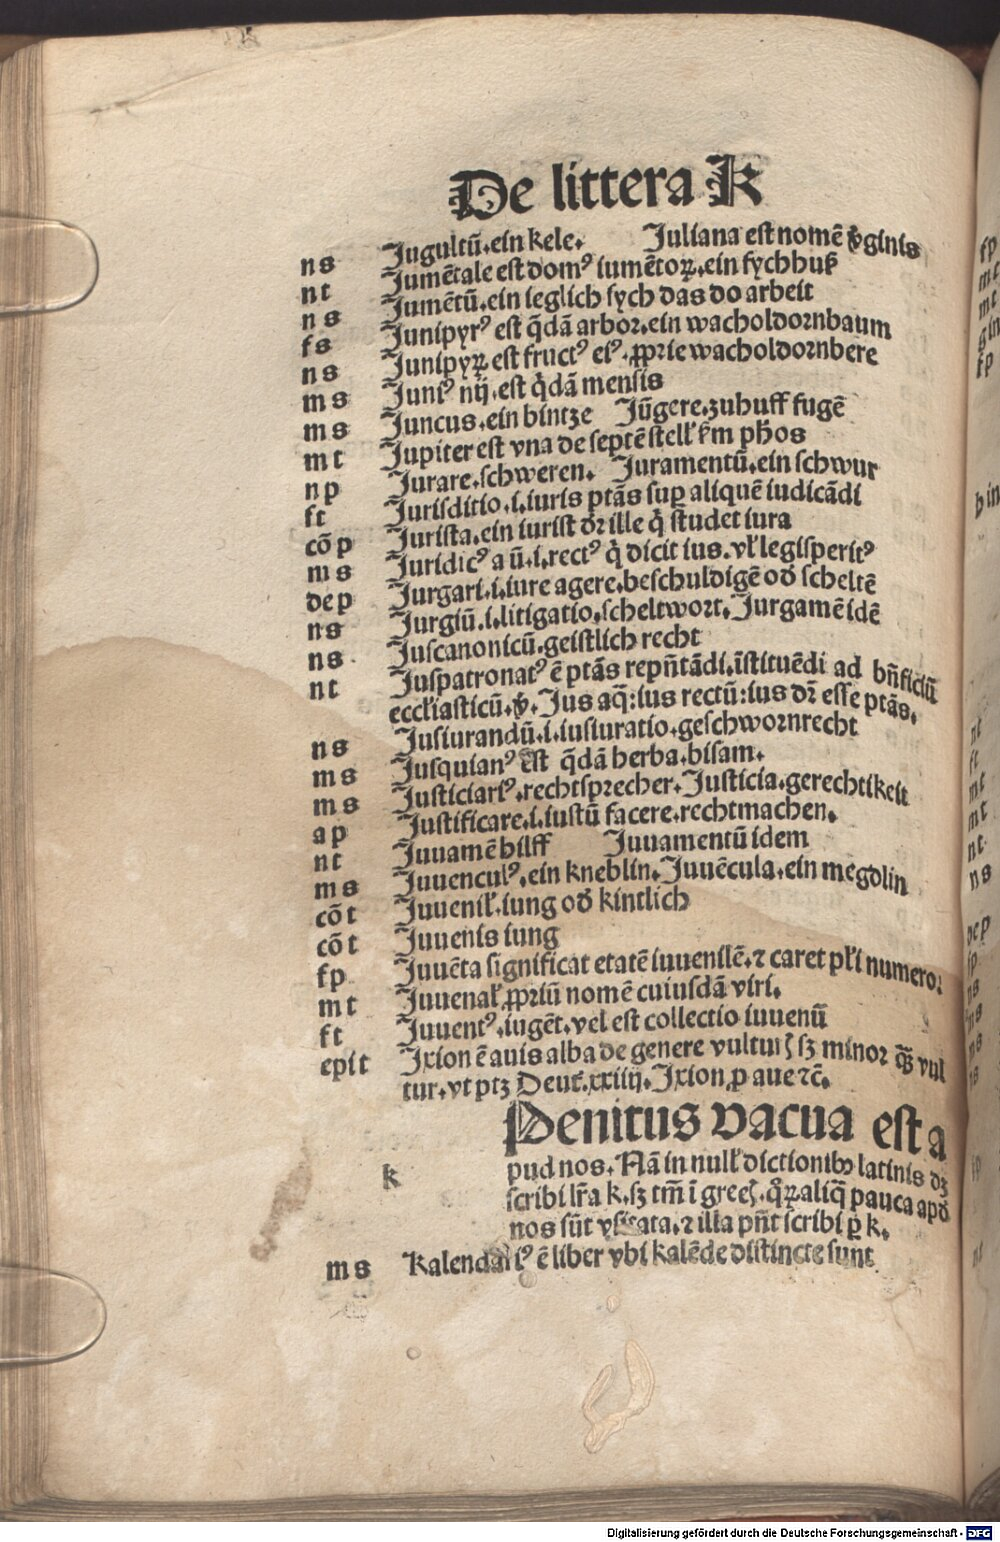 De littera K
ns Jugultū.ein kele. Juliana est nomē v̄ginis
nt Jumētale est domꝰ iumētoꝝ.ein fychhuß
ns Jumētū.ein ieglich fych das do arbeit
fs Junipyrꝰ est q̄dā arbor.ein wacholdornbaum
ns Junipyꝝ est fructꝰ eiꝰ.ꝓprie wacholdornbere
ms Juniꝰ nij.est q̇dā mensis
ms Juncus.ein bintze Jūgere.zuhuff fugē
mt Jupiter est vna de septē stell' ẜm ph̄os
np Jurare.schweren. Juramentū.ein schwur
ft Jurisditio.i.iuris ptās suꝑ aliquē iudicādi
cōp Jurista.ein iurist dr̄ ille q̇ studet iura
ms Juridicꝰ a ū.i.rectꝰ q̇ dicit ius.vl' legisperitꝰ
dep Jurgari.i.iure agere.beschuldigē od̄ scheltē
ns Jurgiū.i.litigatio.scheltwort.Jurgamē idē
ns Juscanonicū.geistlich recht
nt Juspatronatꝰ ē ptās repn̄tādi.īstituēdi ad bn̄ficiū
eccl'iasticū.v̄.Jus aq̄:ius rectū:ius dr̄ esse ptās.
ns Jusiurandū.i.iusiuratio.geschwornrecht
ms Jusquianꝰ est q̄dā herba.bisam.
ms Justiciariꝰ.rechtsprecher.Justicia.gerechtikeit
ap Justificare.i.iustū facere.rechtmachen.
nt Juuamē hilff Juuamentū idem
ms Juuenculꝰ.ein kneblin.Juuēcula.ein megdlin
cōt Juuenil'.iung od̄ kintlich
cōt Juuenis iung
fp Juuēta significat etatē iuuenilē.⁊ caret pl'i numero.
mt Juuenal' ꝓpriū nomē cuiusdā viri.
ft Juuentꝰ.iugēt.vel est collectio iuuenū
epit Jxion ē auis alba de genere vulturꝭ sꝫ minor qͣꝫ vul
tur.vt ptꝫ Deut̄.xxiiij.Jxion ꝓ aue ⁊c̄.
Penitus vacua est a
k pud nos.Nā in null' dictionibꝰ latinis dꝫ
scribi lr̄a k.sꝫ tm̄ ī grecꝭ.q̇ꝝ aliq̄ pauca apd̄
nos sūt vsitata.⁊ illa pn̄t scribi ꝑ k.
ms Kalendariꝰ ē liber vbi kalēde distincte sunt
Digitalisierung gefördert durch die Deutsche Forschungsgemeinschaft - DFG